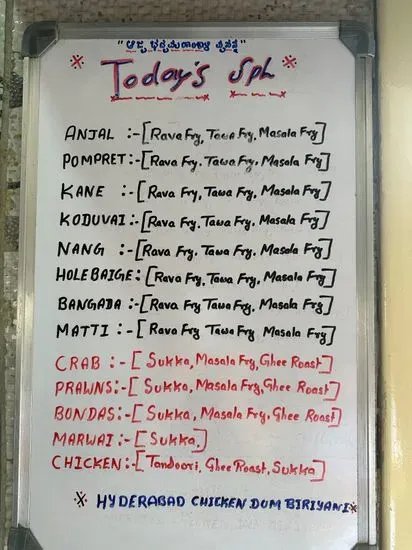 "ಅಜ್ಜ ಭದ್ರಮಹಾಂಕಾಳಿ ಪ್ರಸನ್ನ"
* Today's Spl *
ANJAL :-[Rava Fry, Tawa Fry, Masala Fry]
POMPRET:-[Rava Fry. Tawa Fry, Masala Fry]
KANE :-[Rava Fry, Tawa Fry, Masala Fry]
KODUVAI:-[Rava Fry, Tawa Fry, Masala Fry]
NANG :-[Rava Fry, Tawa Fry, Masala Fry]
HOLEBAIGE:[Rava Fry, Tawa Fry, Masala Fry]
BANGADA :-[Rava Fry Tawa Fry, Masala Fry]
MATTI :-[Rava Fry Tawa Fry Masala Fry]
CRAB :-[Sukka, Masala Fry, Ghee Roast]
PRAWNS:-[Sukka, Masala Fry, Ghee Roast]
BONDAS:-[Sukka, Masala Fry, Ghee Roast]
MARWAI:-[Sukka,]
CHICKEN:-[Tandoori, Ghee Roast, Sukka]
* HYDERABAD CHICKEN DUM BIRIYANI *